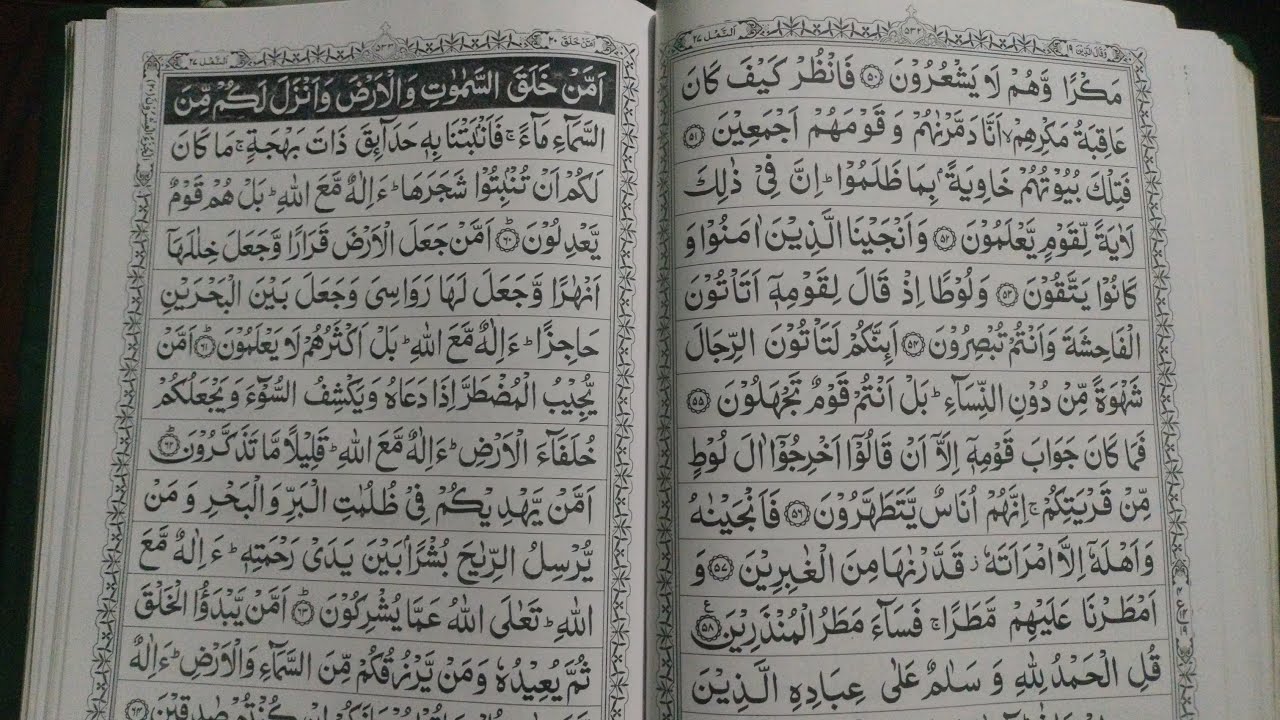 وقال الذين ١٩
٥٣٢
النمل ٢٧
مَكْرًا وَّهُمْ لَا يَشْعُرُوْنَ ۝٥٠ فَانْظُرْ كَيْفَ كَانَ
عَاقِبَةُ مَكْرِهِمْ ۙ اَنَّا دَمَّرْنٰهُمْ وَ قَوْمَهُمْ اَجْمَعِيْنَ ۝٥١
فَتِلْكَ بُيُوْتُهُمْ خَاوِيَةًۢ بِمَا ظَلَمُوْا ؕ اِنَّ فِيْ ذٰلِكَ
لَاٰيَةً لِّقَوْمٍ يَّعْلَمُوْنَ ۝٥٢ وَاَنْجَيْنَا الَّذِيْنَ اٰمَنُوْا وَ
كَانُوْا يَتَّقُوْنَ ۝٥٣ وَلُوْطًا اِذْ قَالَ لِقَوْمِهٖٓ اَتَاْتُوْنَ
الْفَاحِشَةَ وَاَنْتُمْ تُبْصِرُوْنَ ۝٥٤ اَئِنَّكُمْ لَتَاْتُوْنَ الرِّجَالَ
شَهْوَةً مِّنْ دُوْنِ النِّسَآءِ ؕ بَلْ اَنْتُمْ قَوْمٌ تَجْهَلُوْنَ ۝٥٥
فَمَا كَانَ جَوَابَ قَوْمِهٖٓ اِلَّاۤ اَنْ قَالُوْۤا اَخْرِجُوْۤا اٰلَ لُوْطٍ
مِّنْ قَرْيَتِكُمْ ۚ اِنَّهُمْ اُنَاسٌ يَّتَطَهَّرُوْنَ ۝٥٦ فَاَنْجَيْنٰهُ
وَاَهْلَهٗٓ اِلَّا امْرَاَتَهٗ ؗ قَدَّرْنٰهَا مِنَ الْغٰبِرِيْنَ ۝٥٧ وَ
اَمْطَرْنَا عَلَيْهِمْ مَّطَرًا ۚ فَسَآءَ مَطَرُ الْمُنْذَرِيْنَ ۝٥٨
قُلِ الْحَمْدُ لِلّٰهِ وَ سَلٰمٌ عَلٰى عِبَادِهِ الَّذِيْنَ
امن خلق ٢٠
٥٣٣
النمل ٢٧
اَمَّنْ خَلَقَ السَّمٰوٰتِ وَالْاَرْضَ وَاَنْزَلَ لَكُمْ مِّنَ
السَّمَآءِ مَآءً ۚ فَاَنْۢبَتْنَا بِهٖ حَدَآئِقَ ذَاتَ بَهْجَةٍ ۚ مَا كَانَ
لَكُمْ اَنْ تُنْۢبِتُوْا شَجَرَهَا ؕ ءَاِلٰهٌ مَّعَ اللّٰهِ ؕ بَلْ هُمْ قَوْمٌ
يَّعْدِلُوْنَ ۝٦٠ اَمَّنْ جَعَلَ الْاَرْضَ قَرَارًا وَّجَعَلَ خِلٰلَهَاۤ
اَنْهٰرًا وَّجَعَلَ لَهَا رَوَاسِيَ وَجَعَلَ بَيْنَ الْبَحْرَيْنِ
حَاجِزًا ؕ ءَاِلٰهٌ مَّعَ اللّٰهِ ؕ بَلْ اَكْثَرُهُمْ لَا يَعْلَمُوْنَ ۝٦١ اَمَّنْ
يُّجِيْبُ الْمُضْطَرَّ اِذَا دَعَاهُ وَيَكْشِفُ السُّوْٓءَ وَيَجْعَلُكُمْ
خُلَفَآءَ الْاَرْضِ ؕ ءَاِلٰهٌ مَّعَ اللّٰهِ ؕ قَلِيْلًا مَّا تَذَكَّرُوْنَ ۝٦٢
اَمَّنْ يَّهْدِيْكُمْ فِيْ ظُلُمٰتِ الْبَرِّ وَالْبَحْرِ وَ مَنْ
يُّرْسِلُ الرِّيٰحَ بُشْرًۢا بَيْنَ يَدَيْ رَحْمَتِهٖ ؕ ءَاِلٰهٌ مَّعَ
اللّٰهِ ؕ تَعٰلَى اللّٰهُ عَمَّا يُشْرِكُوْنَ ۝٦٣ اَمَّنْ يَّبْدَؤُا الْخَلْقَ
ثُمَّ يُعِيْدُهٗ وَمَنْ يَّرْزُقُكُمْ مِّنَ السَّمَآءِ وَالْاَرْضِ ؕ ءَاِلٰهٌ